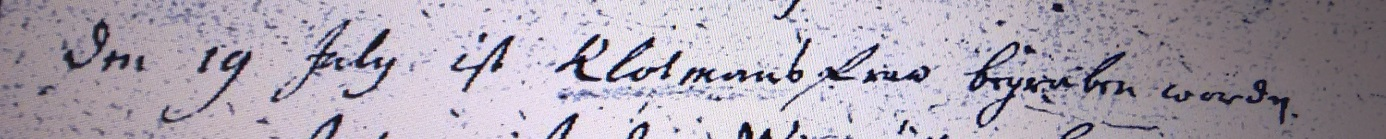 Den 19 July ist Klotmans fraw begraben wordn.